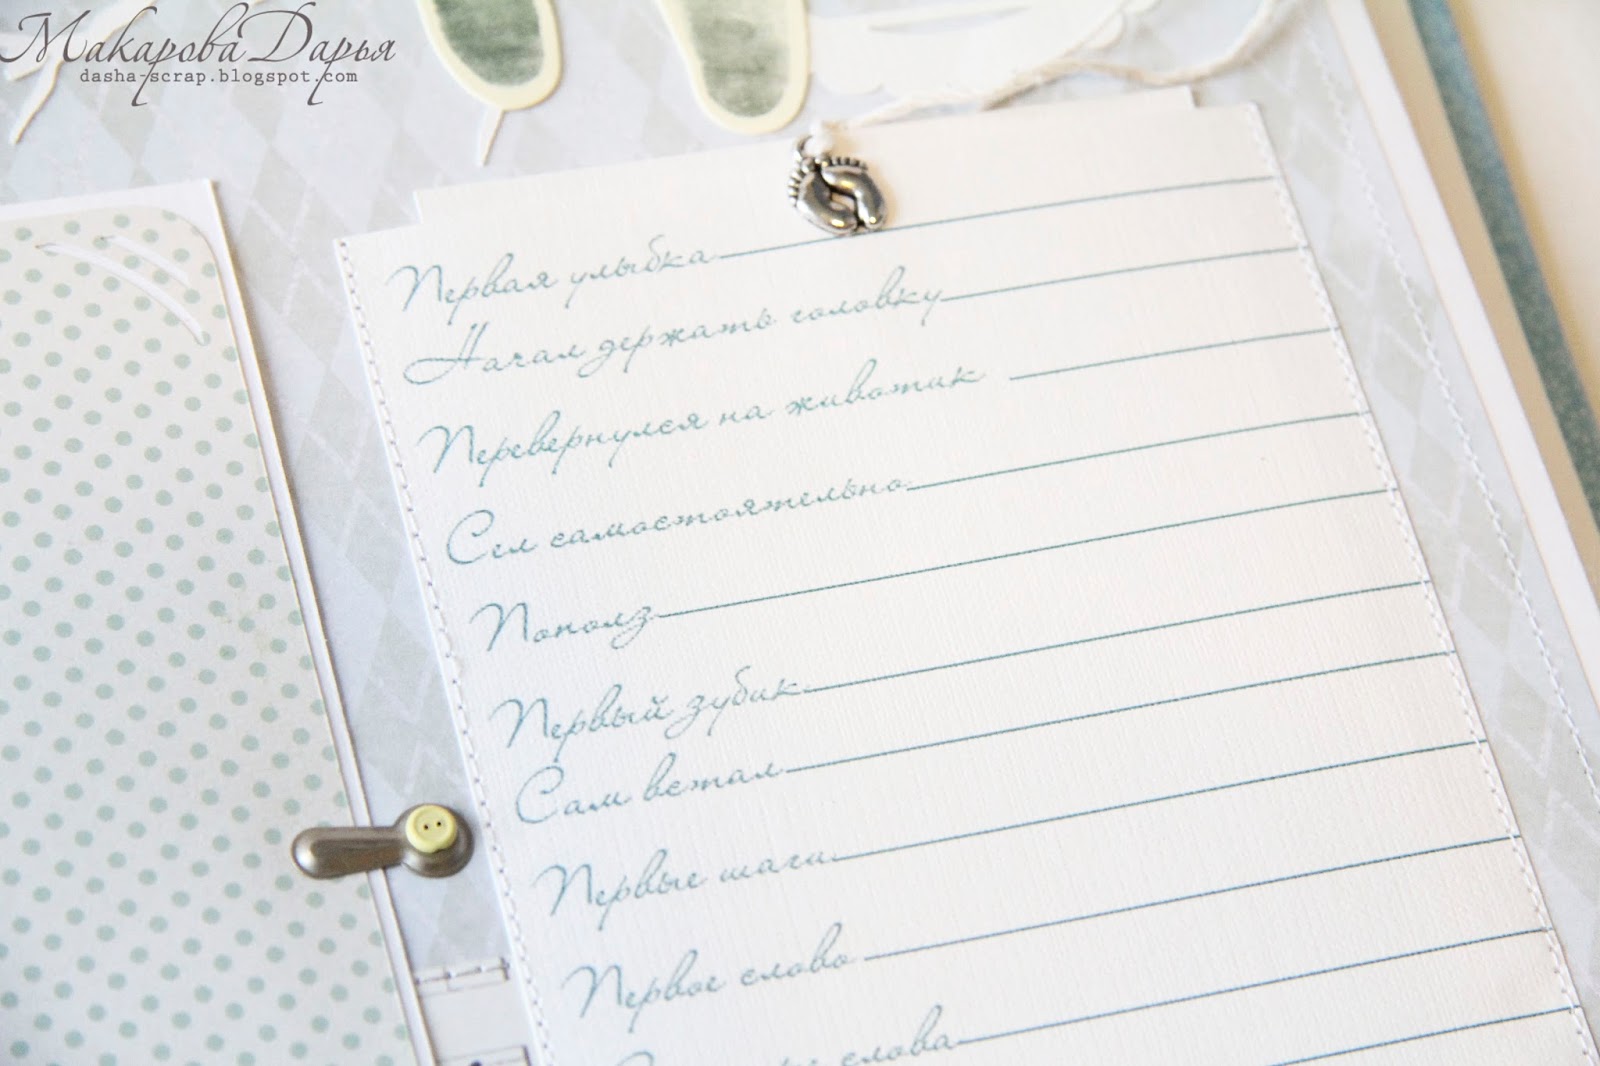 Макарова Дарья
dasha-scrap.blogspot.com
Первая улыбка
Начал держать головку
Перевернулся на животик
Сел самостоятельно
Пополз
Первый зубик
Сам встал
Первые шаги
Первое слово
слова